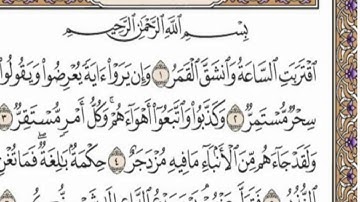 بِسْمِ اللَّهِ الرَّحْمَٰنِ الرَّحِيمِ
اقْتَرَبَتِ السَّاعَةُ وَانْشَقَّ الْقَمَرُ ١ وَإِن يَرَوْا۟ ءَايَةً يُعْرِضُوا۟ وَيَقُولُوا۟
سِحْرٌ مُّسْتَمِرٌّ ٢ وَكَذَّبُوا۟ وَاتَّبَعُوا۟ أَهْوَاءَهُمْ ۚ وَكُلُّ أَمْرٍ مُّسْتَقِرٌّ ٣
وَلَقَدْ جَاءَهُم مِّنَ الْأَنبَاءِ مَا فِيهِ مُزْدَجَرٌ ٤ حِكْمَةٌ بَالِغَةٌ ۖ فَمَا تُغْنِ